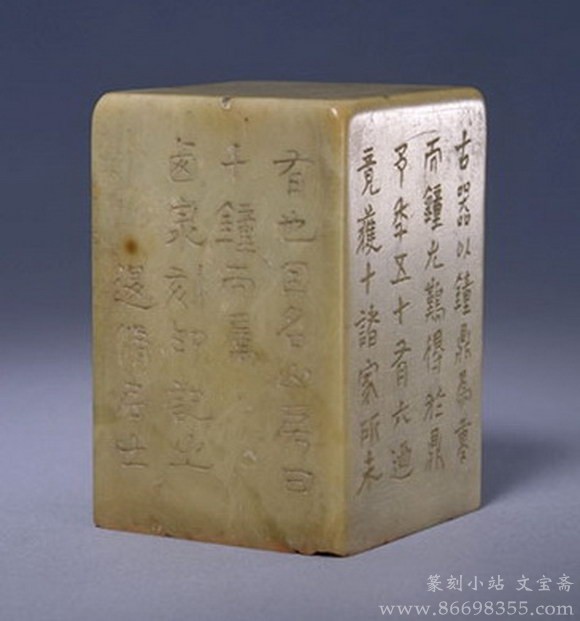 古器以鐘鼎爲重
而鐘尤難得於鼎
予年五十有六迺
竟獲十諸家所未
有也因名山房曰
十鐘而屬
西泉刻印記之
退修居士
篆刻小站 文宝斋
www.86698355.com